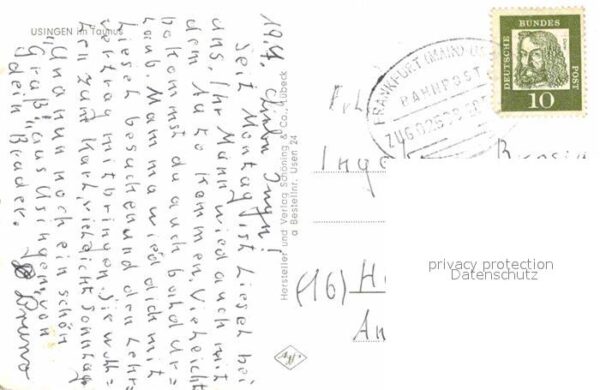 USINGEN im Taunus
19.7. Liebe Inge!
Seit Montag ist Liesel bei
uns. Ihr Mann wird auch mit
dem Auto kommen. Vielleicht
bekommst du auch bald Ur=
laub. Mamma wird dich mit
Liesel besuchen und den Lehr=
vertrag mitbringen. Sie woll=
ten zum Karl, vielleicht Sonntag.
Und nun noch ein schön
"Gruß" aus Usingen von
dein Bruder.
Bruno
Hersteller und Verlag Schöning & Co., Lübeck
a Bestellnr.: Usen 24
DEUTSCHE BUNDES POST
10
FRANKFURT (MAIN)
BAHNPOST
ZUG
Frl.
Inge
(16)
privacy protection
Datenschutz